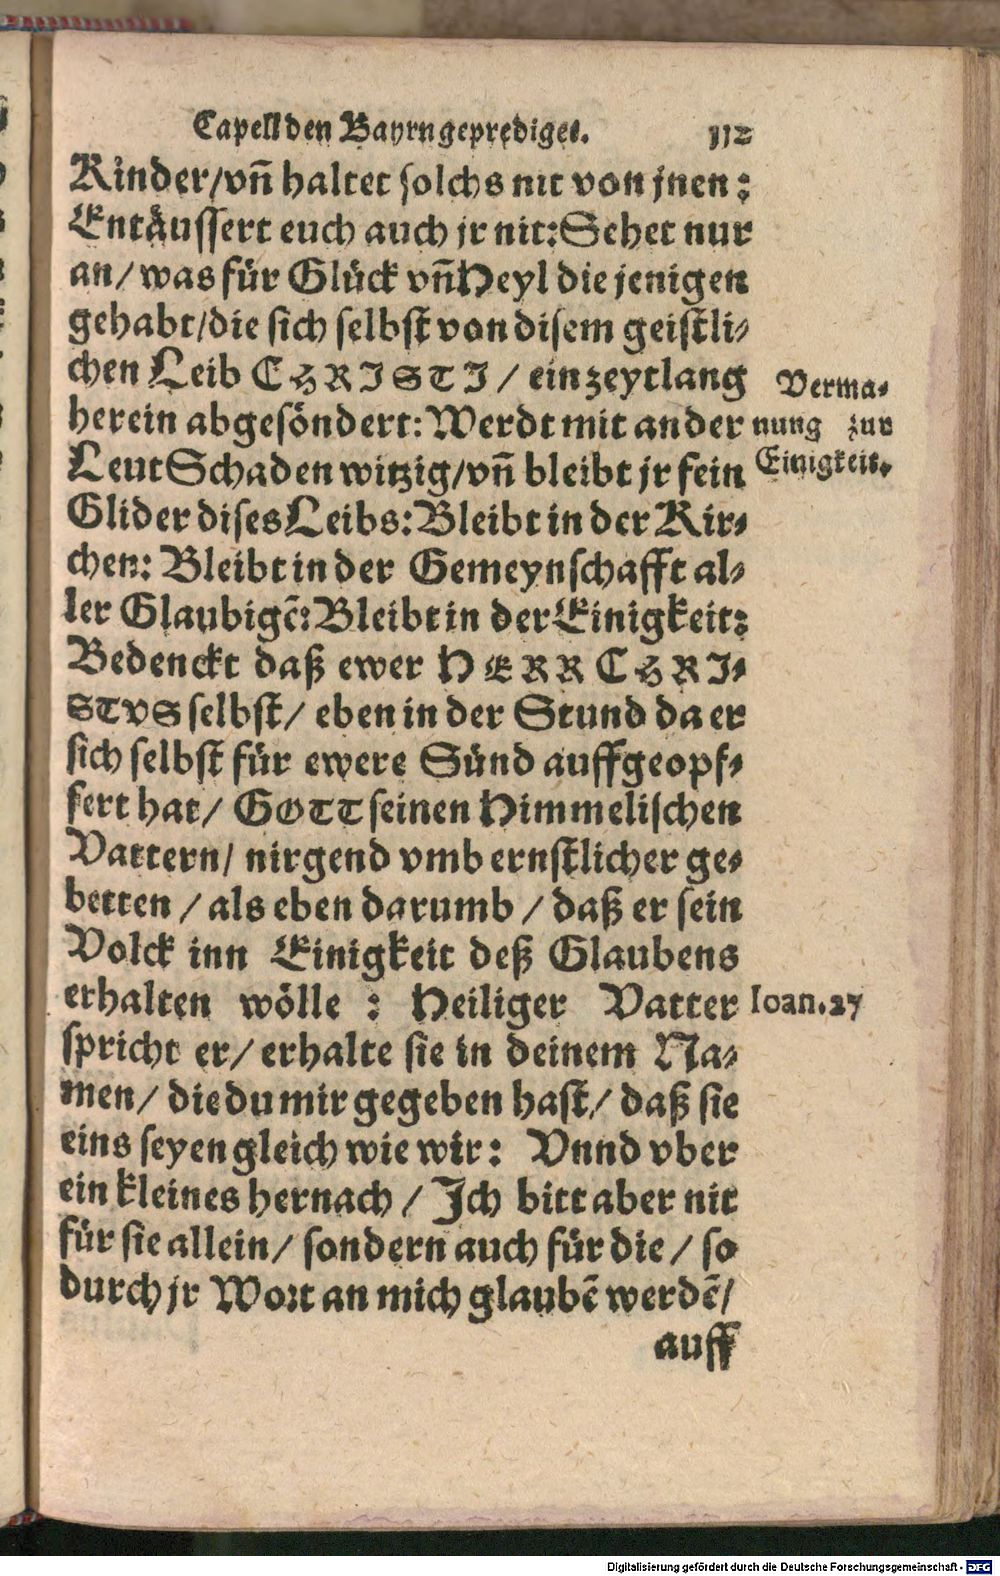 Capell den Bayrn geprediget. 112
Kinder/ vñ haltet solchs nit von jnen:
Entäussert euch auch jr nit: Sehet nur
an/ was für Glück vñ Heyl die jenigen
gehabt/ die sich selbst von disem geistli-
chen Leib CHRISTI/ ein zeytlang
herein abgesöndert: Werdt mit ander
Leut Schaden witzig/ vñ bleibt jr fein
Glider dises Leibs: Bleibt in der Kir-
chen: Bleibt in der Gemeynschafft al-
ler Glaubigē: Bleibt in der Einigkeit:
Bedenckt daß ewer HERR CHRI-
STVS selbst/ eben in der Stund da er
sich selbst für ewere Sünd auffgeopf-
fert hat/ GOTT seinen Himmelischen
Vattern/ nirgend vmb ernstlicher ge-
betten/ als eben darumb/ daß er sein
Volck inn Einigkeit deß Glaubens
erhalten wölle: Heiliger Vatter
spricht er/ erhalte sie in deinem Na-
men/ die du mir gegeben hast/ daß sie
eins seyen gleich wie wir: Vnnd vber
ein kleines hernach/ Ich bitt aber nit
für sie allein/ sondern auch für die/ so
durch jr Wort an mich glaubē werdē/
auff
Verma-
nung zur
Einigkeit.
Ioan.27
Digitalisierung gefördert durch die Deutsche Forschungsgemeinschaft - DFG